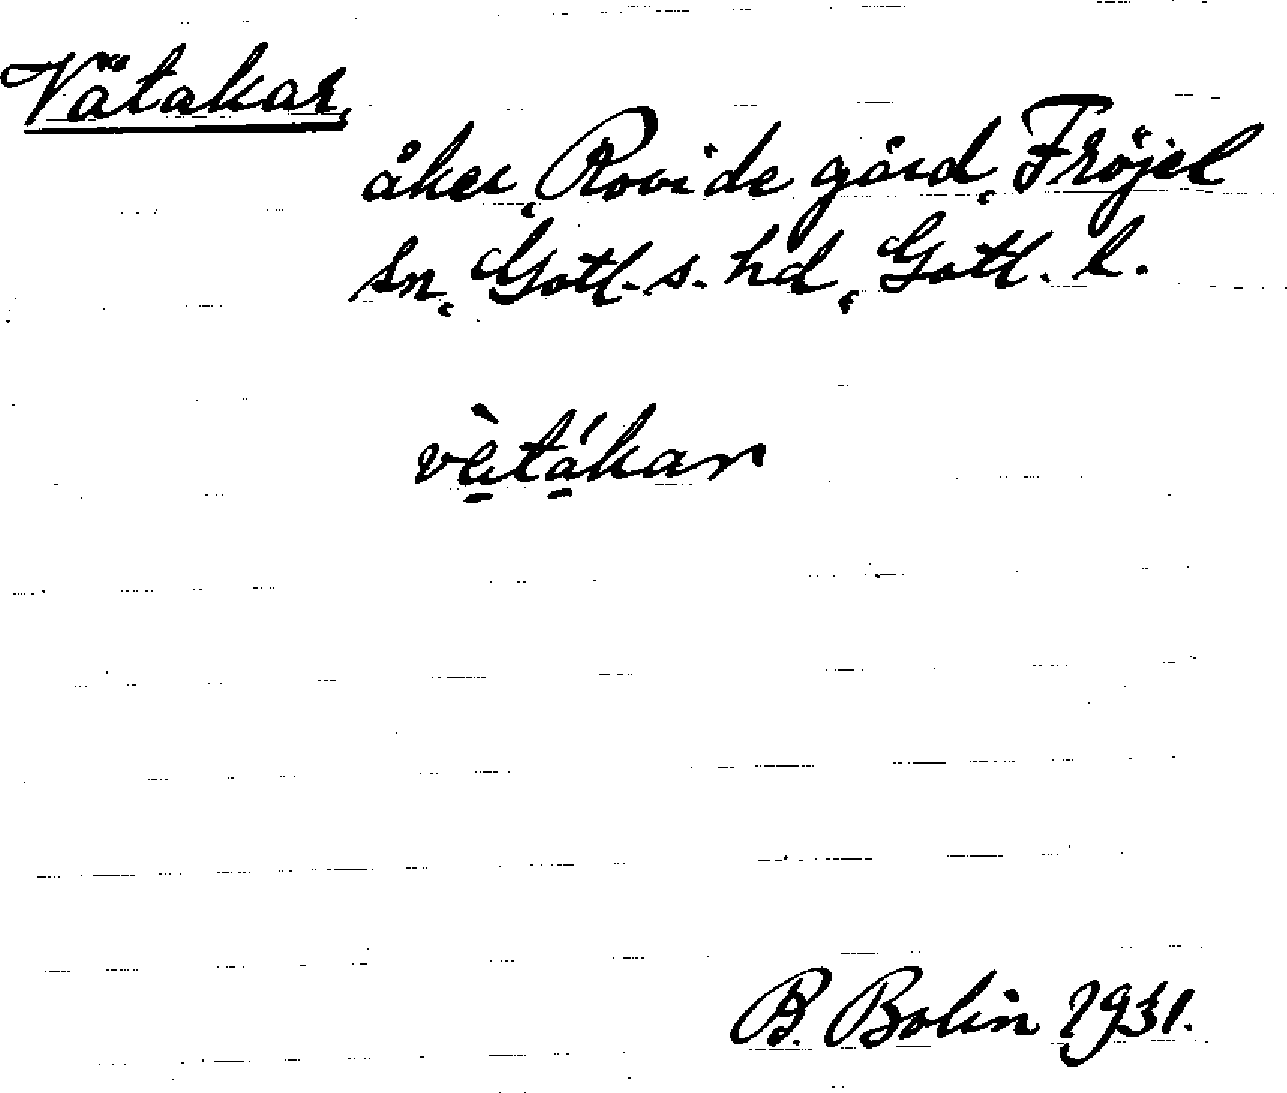 Vätakar,
åker, Rovide gård, Fröjel
sn, Gotl. s. hd, Gotl. l.
vè̱tá̱kar
B. Bolin 1931.